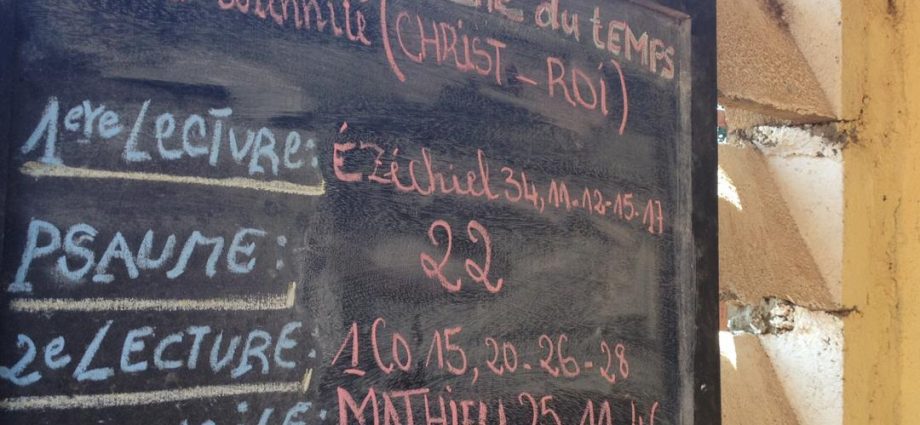 du TEMPS
Solennité (CHRIST-ROI)
1ere LECTURE: ÉZéchiel 34, 11-12-15-17
PSAUME: 22
2e LECTURE: 1Co 15, 20-26-28
MATHIEU 25